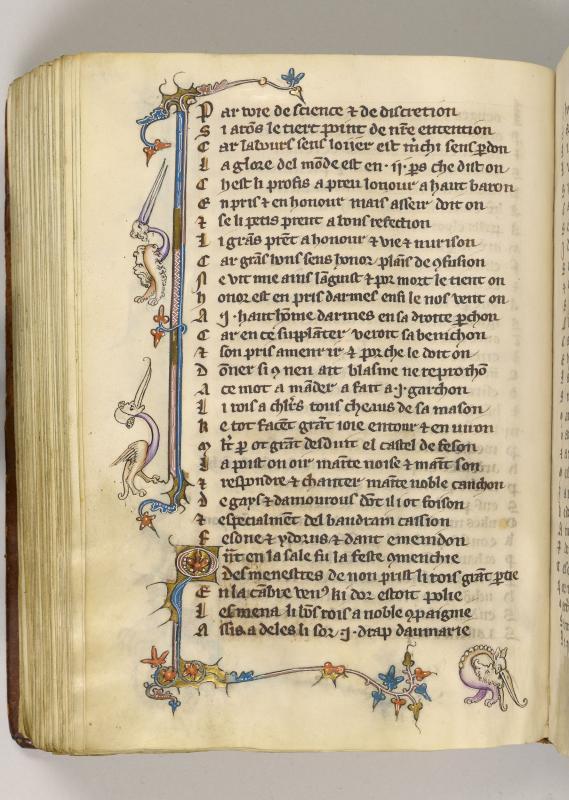 P ar voie de science ⁊ de discretion
S i arōs le tiert point de nr̄e entention
C ar labours sens loiier est m̄chi sens ꝑdon
L a glore del mōde est en ·ij· ꝑs che dist on
C hest li profis a preu lonour a haut baron
E n pris ⁊ en honour mais asseir doit on
⁊ se li petis prent a bons refection
L i grās prēt a honour ⁊ vie ⁊ nurison
C ar grās bons sens honor plains de ꝯfusion
N e vit mie ains languist ⁊ por mort le tient on
h onor est en pris darmes ensi le nos vent on
A ·j· haut hōme darmes en sa droite ꝑchon
C ar en ce supplanter veroit sa benichon
⁊ son pris amenrir ⁊ por che le doit on
D ōner si ꝯ nen ait blasme ne reprochō
A ce mot a māder a fait a ·j· garchon
L i rois a chlr̄s tous cheaus de sa mason
k e tot facēt grāt ioie entour ⁊ en uiron
M lt̄ ꝑ ot grāt desduit el castel de feson
L a poist on oir mainte noise ⁊ maīt son
⁊ respondre ⁊ chanter mainte noble canchon
D e gays ⁊ damourous dōt il i ot foison
⁊ especialmēt del baudrain cassion
F esone ⁊ ydorus ⁊ dant emenidon
Q ūt en la sale fu la feste ꝯmenchie
Des menestres de non prist li rois grāt ꝑtie
E n la cābre venꝰ ki dor estoit polie
L es mena li bōs rois a noble ꝯpaignie
A ssis a deles li sor ·j· drap daumarie